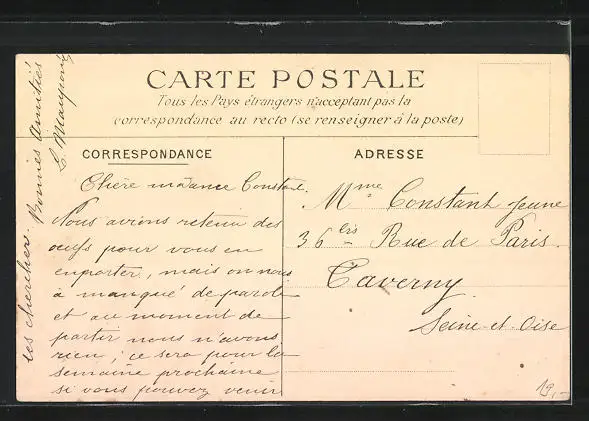 CARTE POSTALE
Tous les Pays étrangers n'acceptent pas la
correspondance au recto (se renseigner à la poste)
CORRESPONDANCE
Chère madame Constant.
Nous avions retenu des
œufs pour vous en
emporter, mais on nous
a manqué de parole
et au moment de
partir nous n'avons
rien, ce sera pour la
semaine prochaine
si vous pouvez venir
les chercher. Bonnes Amitiés
ADRESSE
Mme Constant Jeune
36 bis Rue de Paris.
Taverny.
Seine-et-Oise
19,-